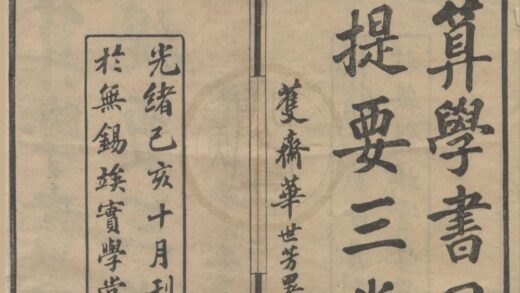 算學書目
提要三卷
蒦齋華世芳署
光緒己亥十月刊
於無錫竢實學堂